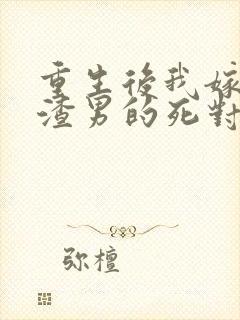 重生後我嫁
渣男的死對
弥檀